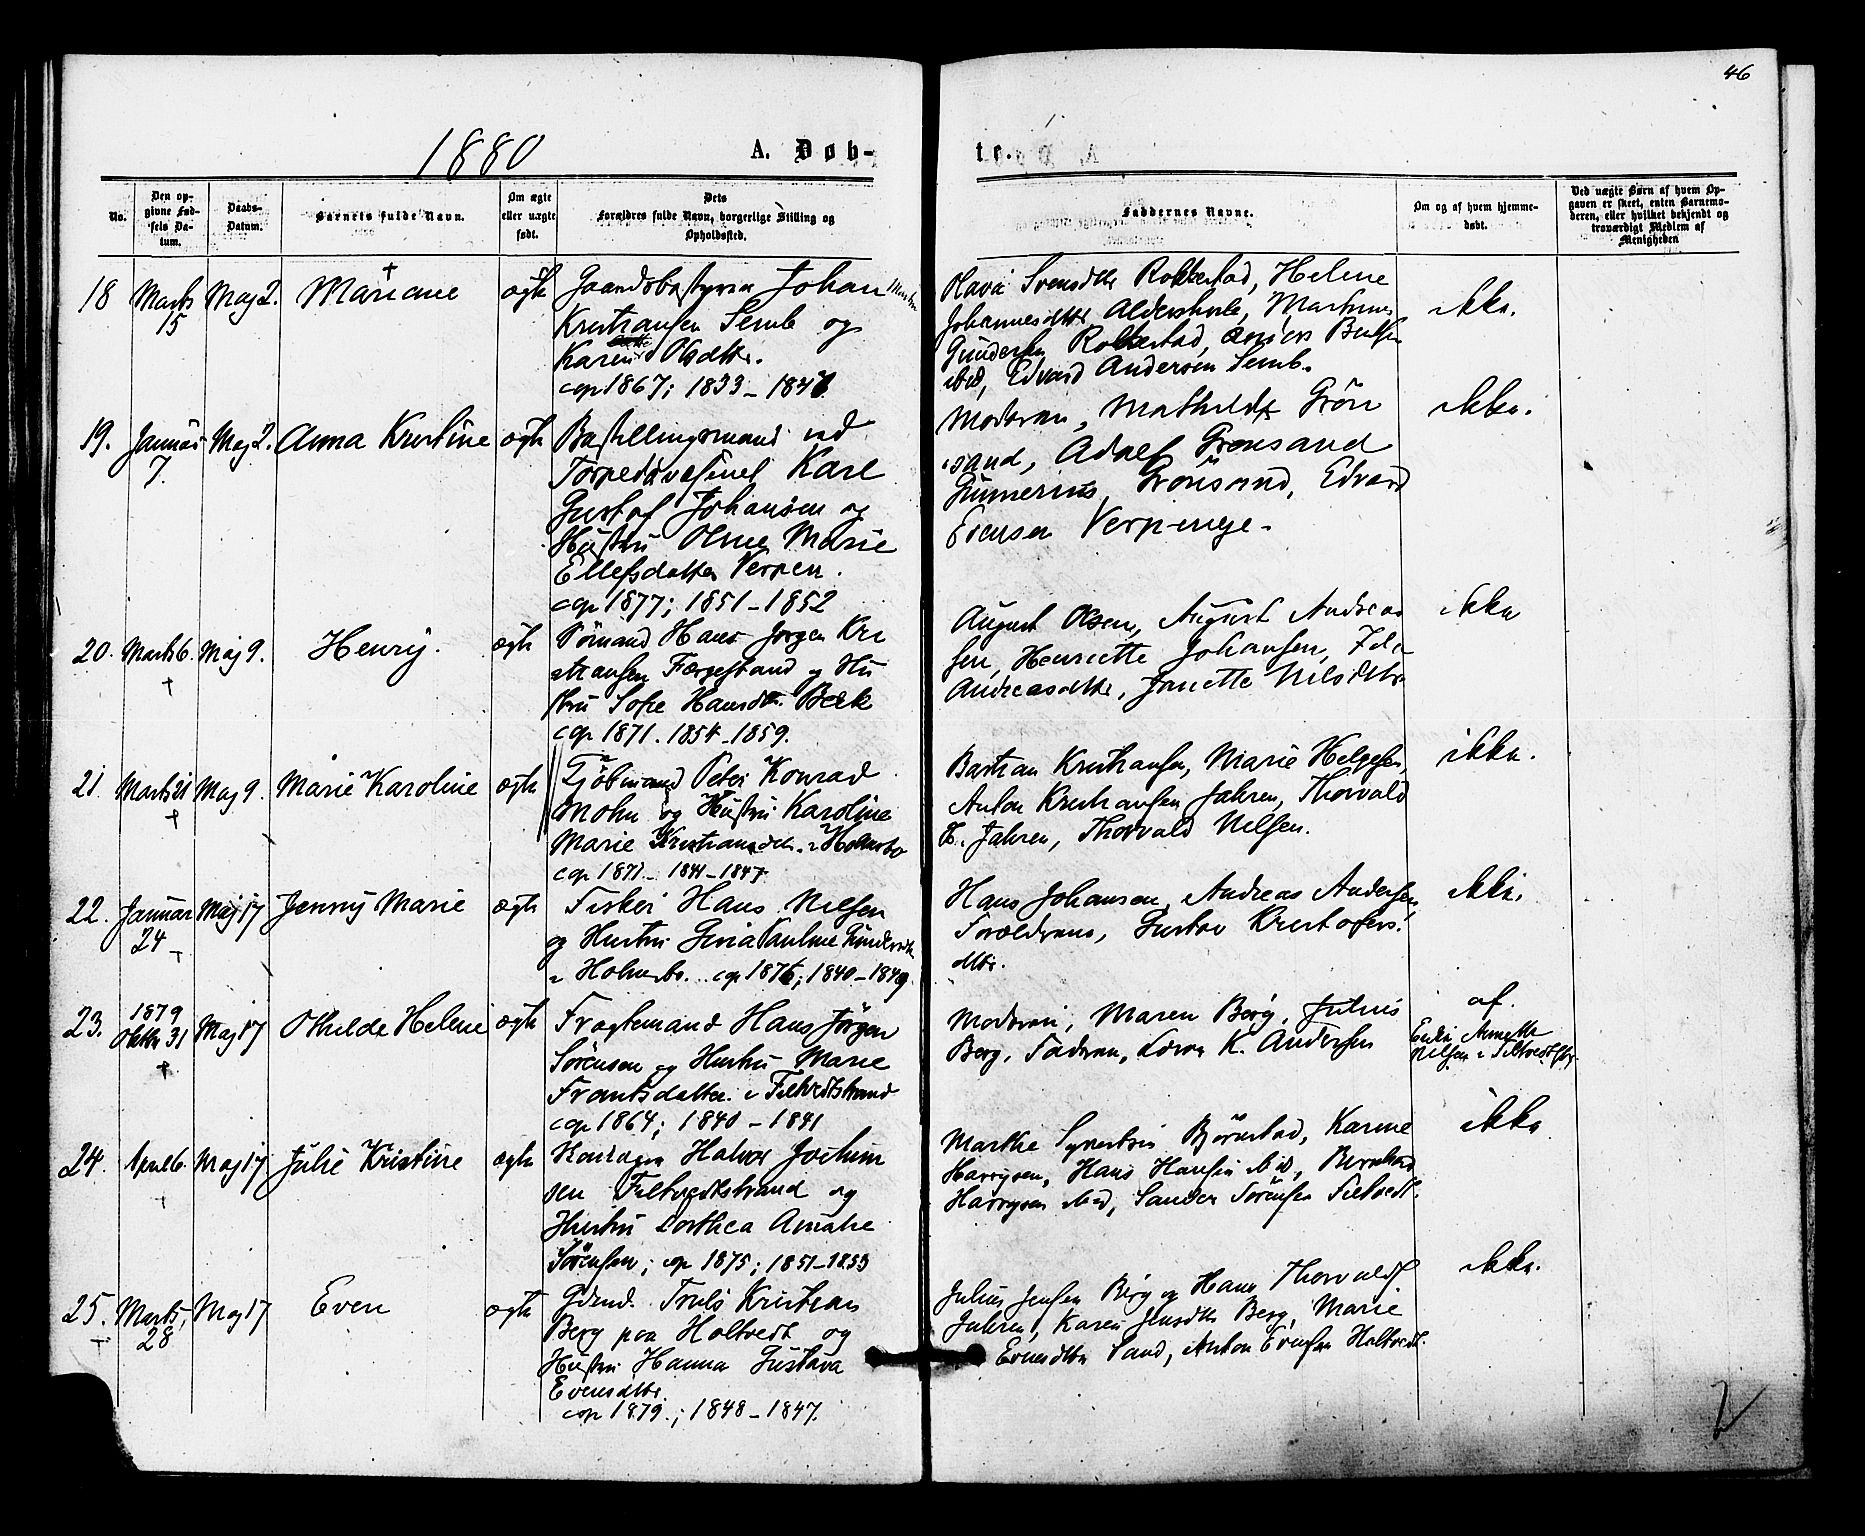 46
1880
A. Døb-
te.
No.
Den op-
givne Fød-
sels Da-
tum.
Daabs-
Datum.
Barnets fulde Navn.
Om ægte
eller uægte
født.
Dets
Forældres fulde Navn, borgerlige Stilling og
Opholdssted.
Faddernes Navne.
Om og af hvem hjemme-
døbt.
Ved uægte Børn af hvem Op-
gaven er skeet, enten Barnemo-
deren, eller hvilket bekjendt og
troværdigt Medlem af
Menigheden
18 Marts
15
Maj 2.
Mariane
ægte
Gaardsbestyrer Johan
Kristiansen Semb og
Karen Olsdtr.
cop 1867; 1833 - 1841
Olava Svensdtr Rokkestad, Helene
Johannesdtr
Gundersen Rokkestad,
ibid, Edvard Andersen Semb.
ikke.
19. Januar
7.
Maj 2. Anna Kristine ægte
Bestillingsmand ved
Torpedovæsenet Karl
Gustaf Johansen og
Hustru Oline Marie
Ellefsdatter Verpen.
cop 1877; 1851 - 1852
Moderen, Mathilde Grön
sand, Adolf Grønsand
Gunnerius Grönsand, Edvard
Evensen
ikke.
20. Marts 6. Maj 9. Henrij. ægte
Sömand Hans Jørgen Kri
stiansen Færgestrand og Hu
stru Sofie Hansdtr. Bæk
cop 1871. 1854 - 1859.
August Olsen, August Andrea
sen, Henriette Johansen,
Andreasdtr, Janette Nilsdtr
ikke
21. Marts 21 Maj 9. Marie Karoline ægte
Kjöbmand Peter Konrad
Mohn og Hustru Karoline
Marie Kristiansdtr. i Holmsbo
cop 1871 - 1841 - 1847
Bastian Kristiansen, Marie Helgesen,
Anton Kristiansen Jahren, Thorvald
H. Jahren, Thorvald Nilsen.
ikke.
22. Januar
24
Maj 17 Jenny Marie ægte
Fisker Hans Nilsen
og Hustru Pauline Gundersdtr
i Holmsbo. cop 1876; 1840 - 1849.
Hans Johansen, Andreas Andersen,
Forældrene, Gustav Kristofers.
dtr.
ikke.
23. 1879
Oktbr 31
Maj 17 Othilde Helene ægte
Fragtemand Hans Jörgen
Sörensen og Hustru Marie
Frantsdatter i Filtvedtstrand
cop 1864; 1840 - 1841
Moderen, Maren Berg, Julius
Berg, Faderen, K. Andersen
af
Nilsen i
24. April 6. Maj 17 Julie Kristine ægte
Halvor Jochum
sen Filtvedtstrand og
Hustru Dorthea Amalie
Sörensen; cop 1875; 1851 - 1853
Marthe Syvertsen Björnstad, Karine
Harrysen, Hans Hansen ibid, Bernhard
Harrysen ibid, Sander Sörensen Filtvedt.
ikke
25. Marts
28
Maj 17 Even ægte
Gdmd. Truls Kristian
Berg paa Holtvedt og
Hustru Hanna Gustava
Evensdtr.
cop 1879.; 1848 - 1847.
Julius Jensen Berg og Hans Thorvaldf
Jahren, Karen Jensdtr Berg, Marie
Evensdtr Sand, Anton Evensen Holtvedt.
ikke.